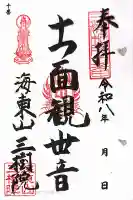 奉拝
令和八年 月 日
十一面観世音
海東山
三樹院
十番